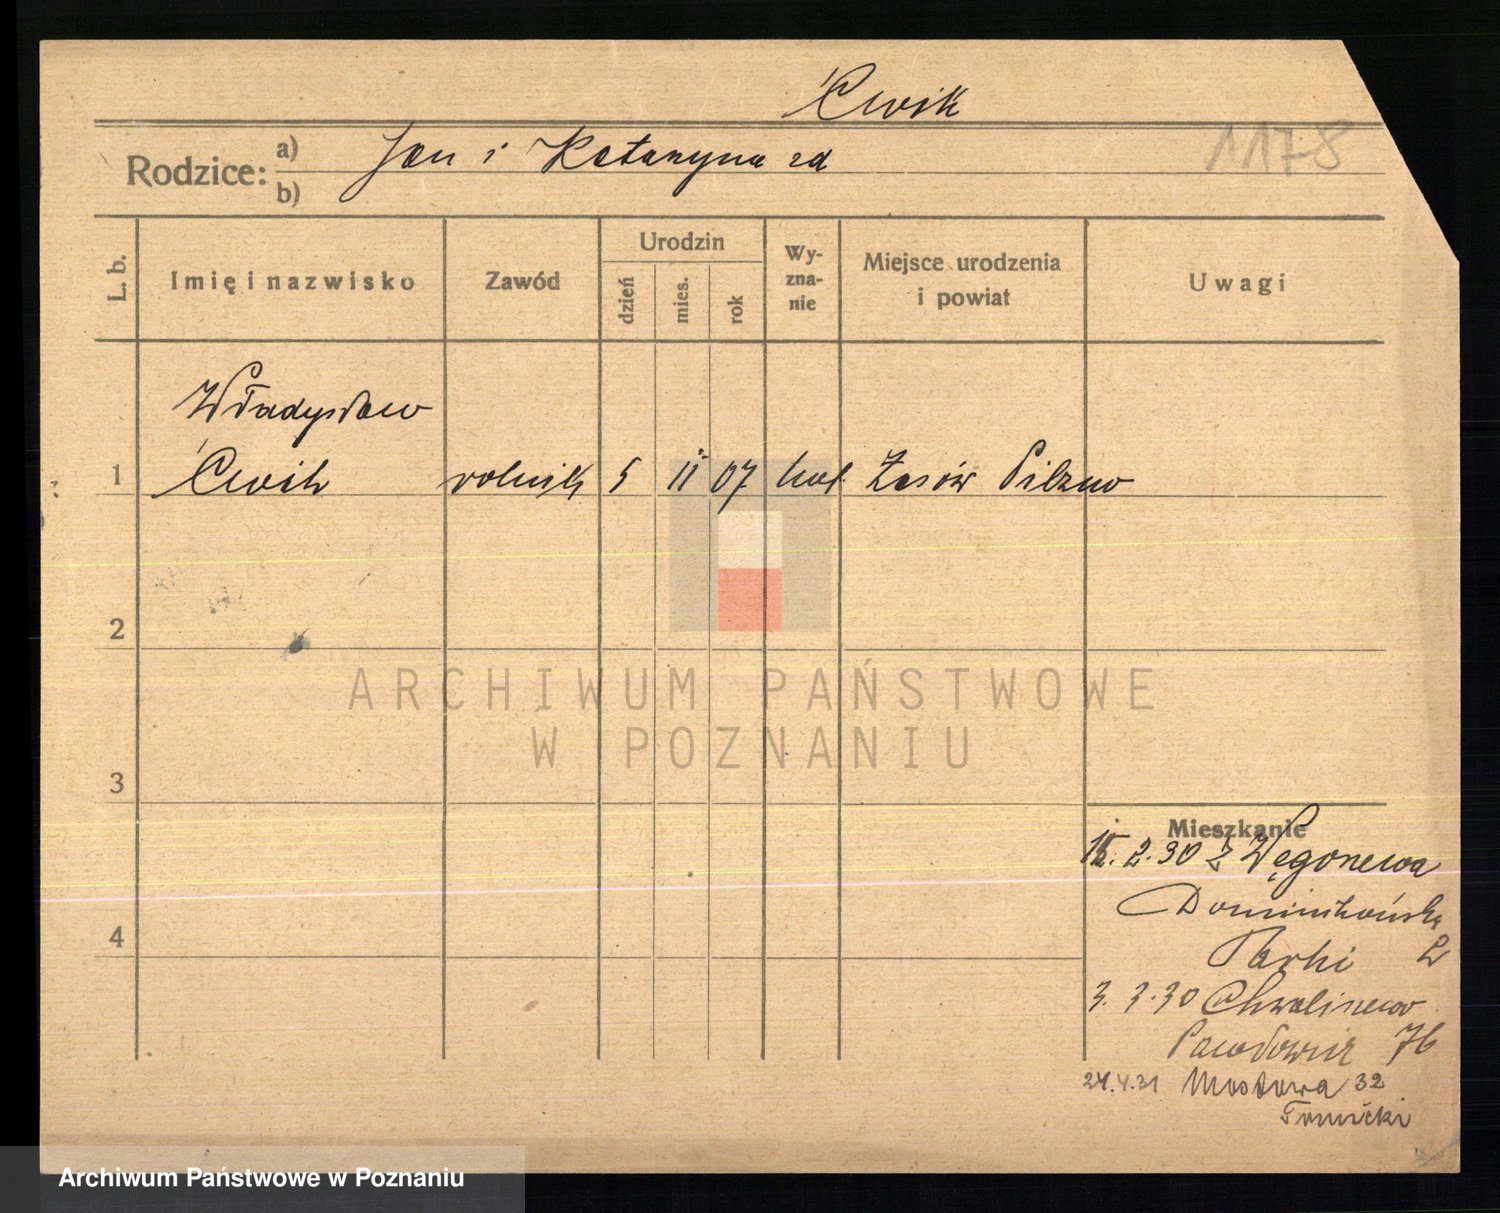 Ćwik
1178
Rodzice: a) Jan i Katarzyna zd
b)
L. b. Imię i nazwisko Zawód Urodzin dzień mies. rok Wy-zna-nie Miejsce urodzenia i powiat Uwagi
Władysław
1 Ćwik rolnik 5 II 07 kat. Zasów Pilzno
2
ARCHIWUM PAŃSTWOWE
W POZNANIU
3
Mieszkanie
15. 2. 30 z
Dominikańska
4
Parki 2
3. 3. 30 Chwaliszewo
76
24.4.31 Mostowa 32
Tomicki
Archiwum Państwowe w Poznaniu